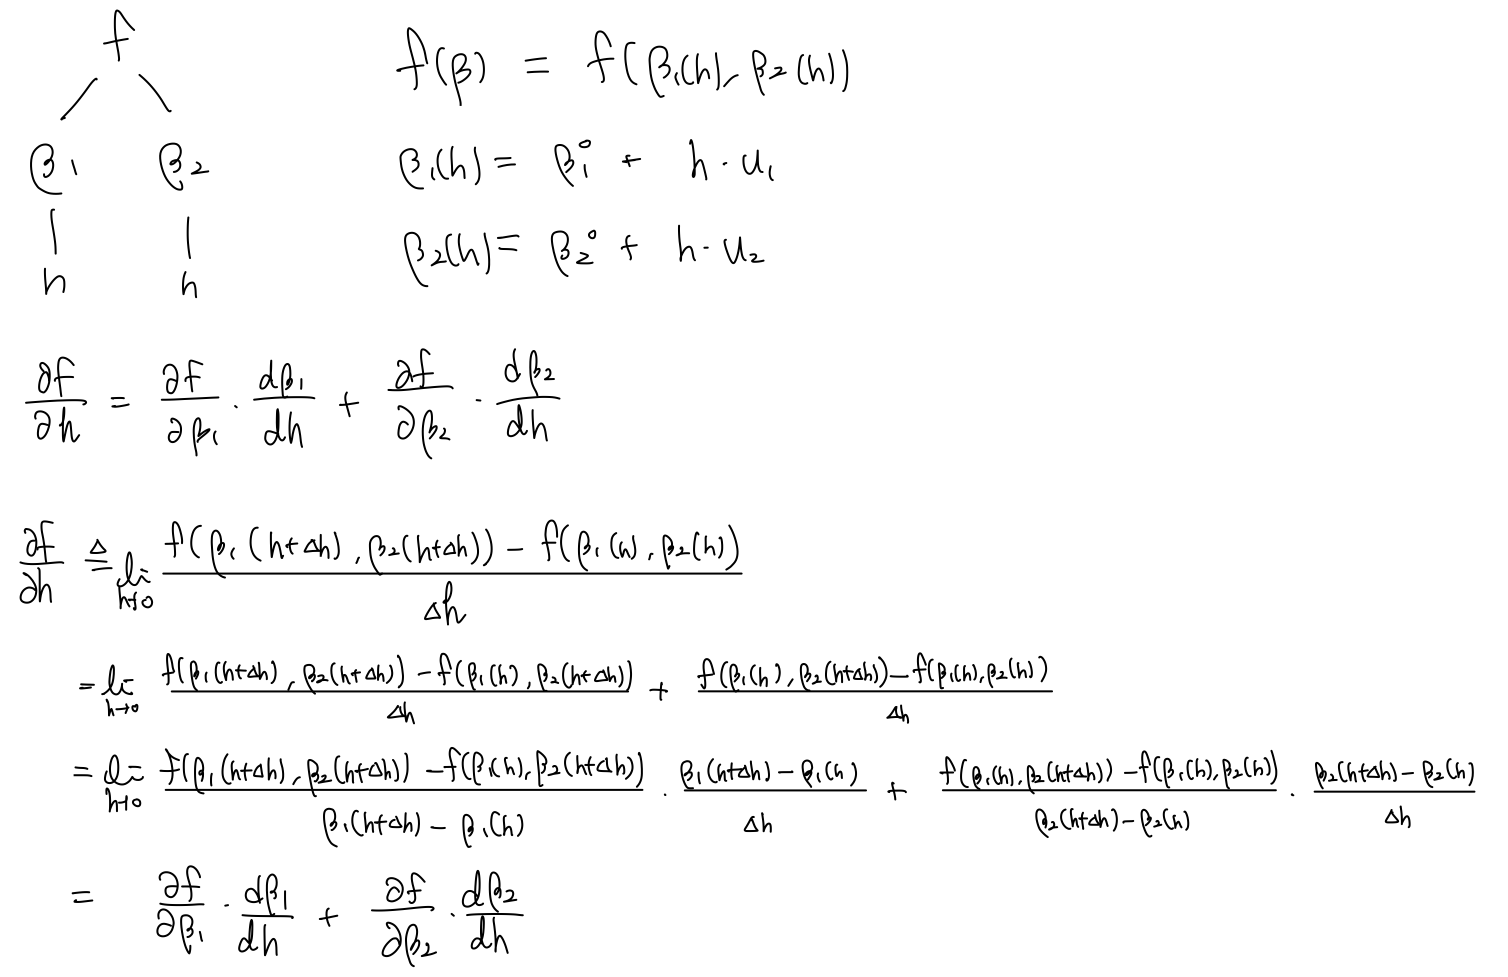 f
β₁ β₂
h h
f(β) = f(β₁(h), β₂(h))
β₁(h) = β₁° + h · u₁
β₂(h) = β₂° + h · u₂
∂f/∂h = ∂f/∂β₁ · dβ₁/dh + ∂f/∂β₂ · dβ₂/dh
∂f/∂h ≜ lim h→0 f(β₁(h+Δh), β₂(h+Δh)) − f(β₁(h), β₂(h)) / Δh
= lim h→0 f(β₁(h+Δh), β₂(h+Δh)) − f(β₁(h), β₂(h+Δh)) / Δh + f(β₁(h), β₂(h+Δh)) − f(β₁(h), β₂(h)) / Δh
= lim h→0 f(β₁(h+Δh), β₂(h+Δh)) − f(β₁(h), β₂(h+Δh)) / β₁(h+Δh) − β₁(h) · β₁(h+Δh) − β₁(h) / Δh + f(β₁(h), β₂(h+Δh)) − f(β₁(h), β₂(h)) / β₂(h+Δh) − β₂(h) · β₂(h+Δh) − β₂(h) / Δh
= ∂f/∂β₁ · dβ₁/dh + ∂f/∂β₂ · dβ₂/dh